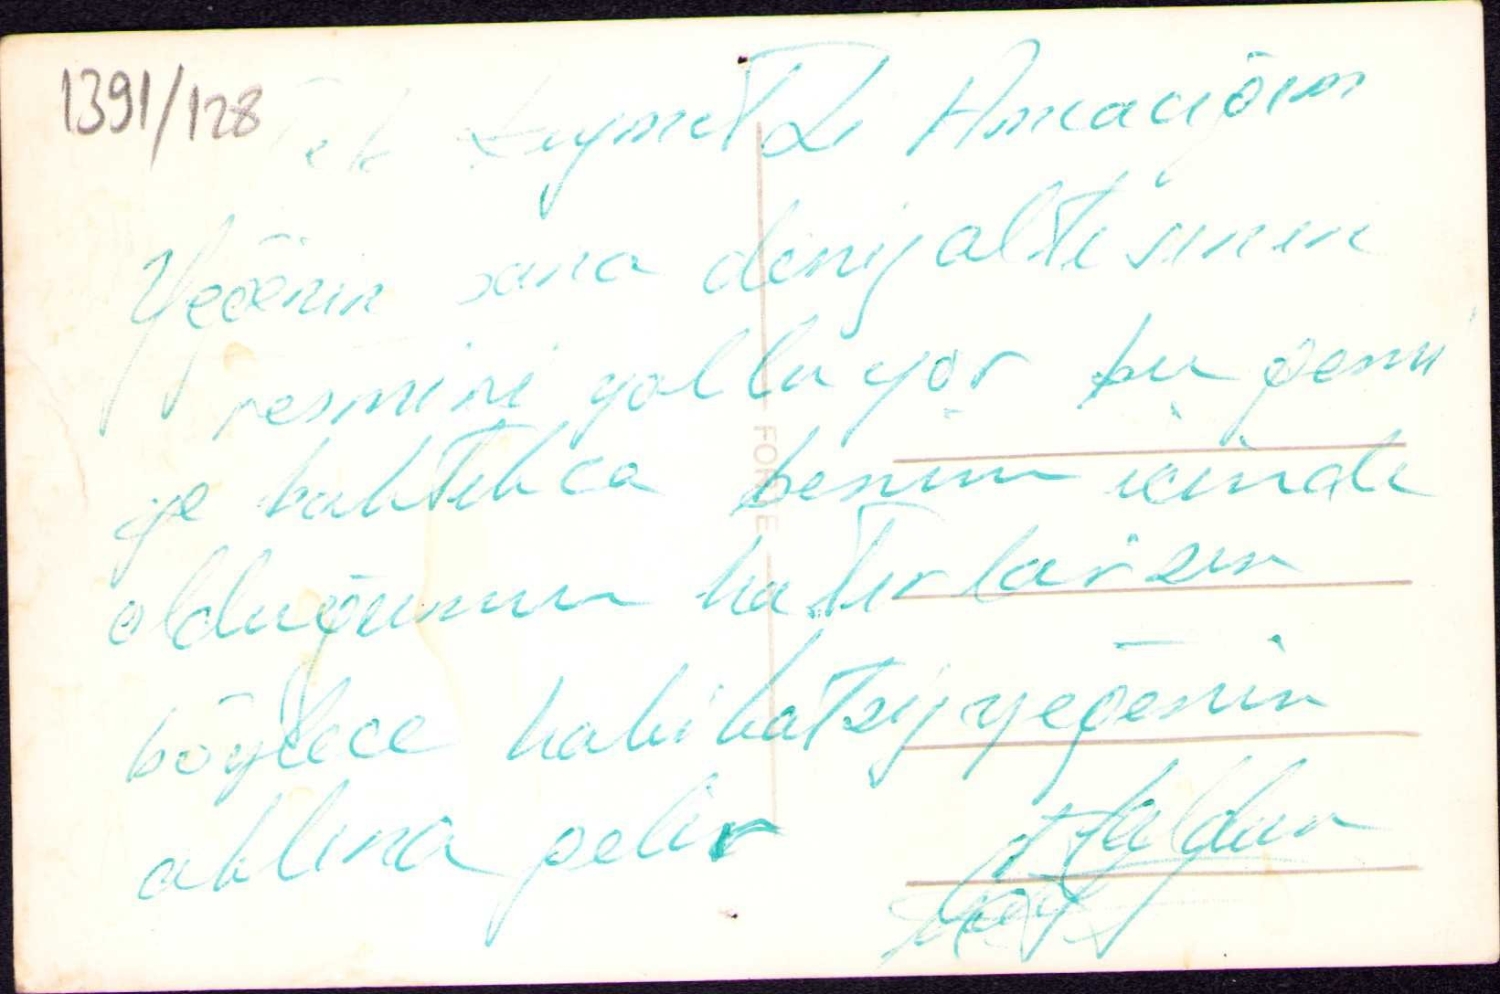 1391/128
Pek kıymetli Amcacığım
Yeğenin sana denizaltısının
resmini yolluyor bu gemi
ye baktıkca benim icinde
olduğumu hatırlarsın
böylece hakikatsiz yeğenin
aklına gelir
Haldun
FO
E